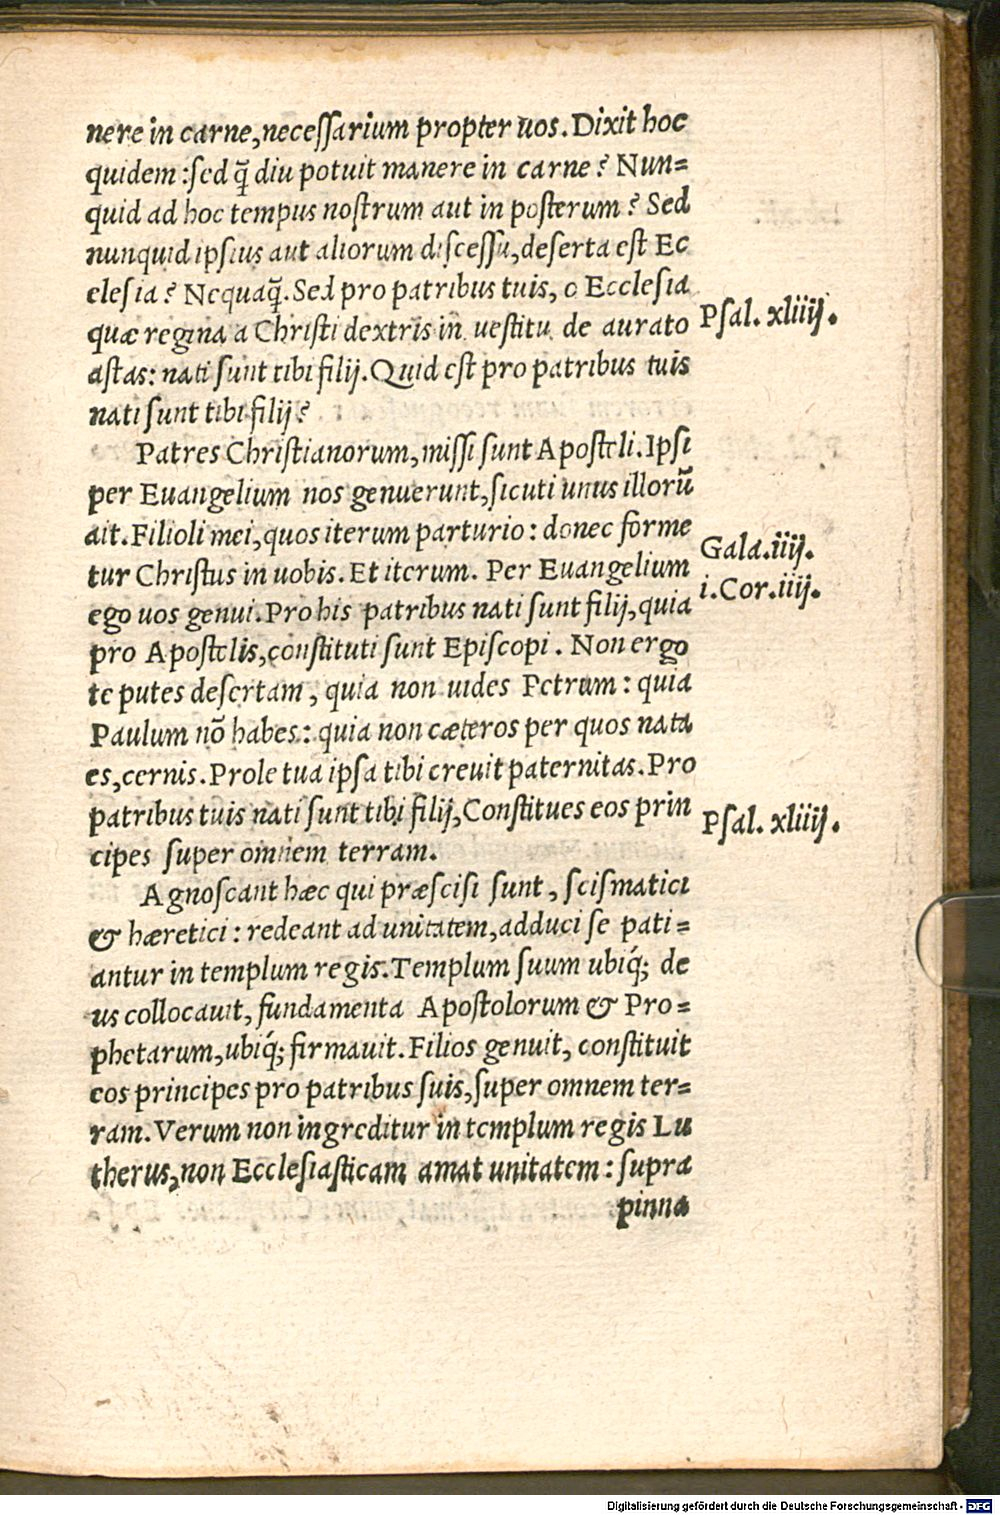 nere in carne,necessarium propter uos.Dixit hoc
quidem:sed q̃ diu potuit manere in carne? Nun=
quid ad hoc tempus nostrum aut in posterum? Sed
nunquid ipsius aut aliorum discessu,deserta est Ec
clesia? Nequaq̃.Sed pro patribus tuis, o Ecclesia
quæ regina a Christi dextris in uestitu de aurato
Psal. xliiij.
astas: nati sunt tibi filij.Quid est pro patribus tuis
nati sunt tibi filij?
Patres Christianorum,missi sunt Apostoli.Ipsi
per Euangelium nos genuerunt,sicuti unus illorũ
ait.Filioli mei,quos iterum parturio: donec forme
Gala.iiij.
tur Christus in uobis.Et iterum. Per Euangelium
i.Cor.iiij.
ego uos genui.Pro his patribus nati sunt filij,quia
pro Apostolis,constituti sunt Episcopi. Non ergo
te putes desertam, quia non uides Petrum: quia
Paulum nõ habes: quia non cæteros per quos nata
es,cernis.Prole tua ipsa tibi creuit paternitas.Pro
patribus tuis nati sunt tibi filij,Constitues eos prin
Psal. xliiij.
cipes super omnem terram.
Agnoscant hæc qui præscisi sunt, scismatici
& hæretici: redeant ad unitatem,adduci se pati=
antur in templum regis.Templum suum ubiq́; de
us collocauit, fundamenta Apostolorum & Pro=
phetarum,ubiq́; firmauit.Filios genuit, constituit
eos principes pro patribus suis,super omnem ter=
ram.Verum non ingreditur in templum regis Lu
therus,non Ecclesiasticam amat unitatem: supra
pinna
Digitalisierung gefördert durch die Deutsche Forschungsgemeinschaft - DFG